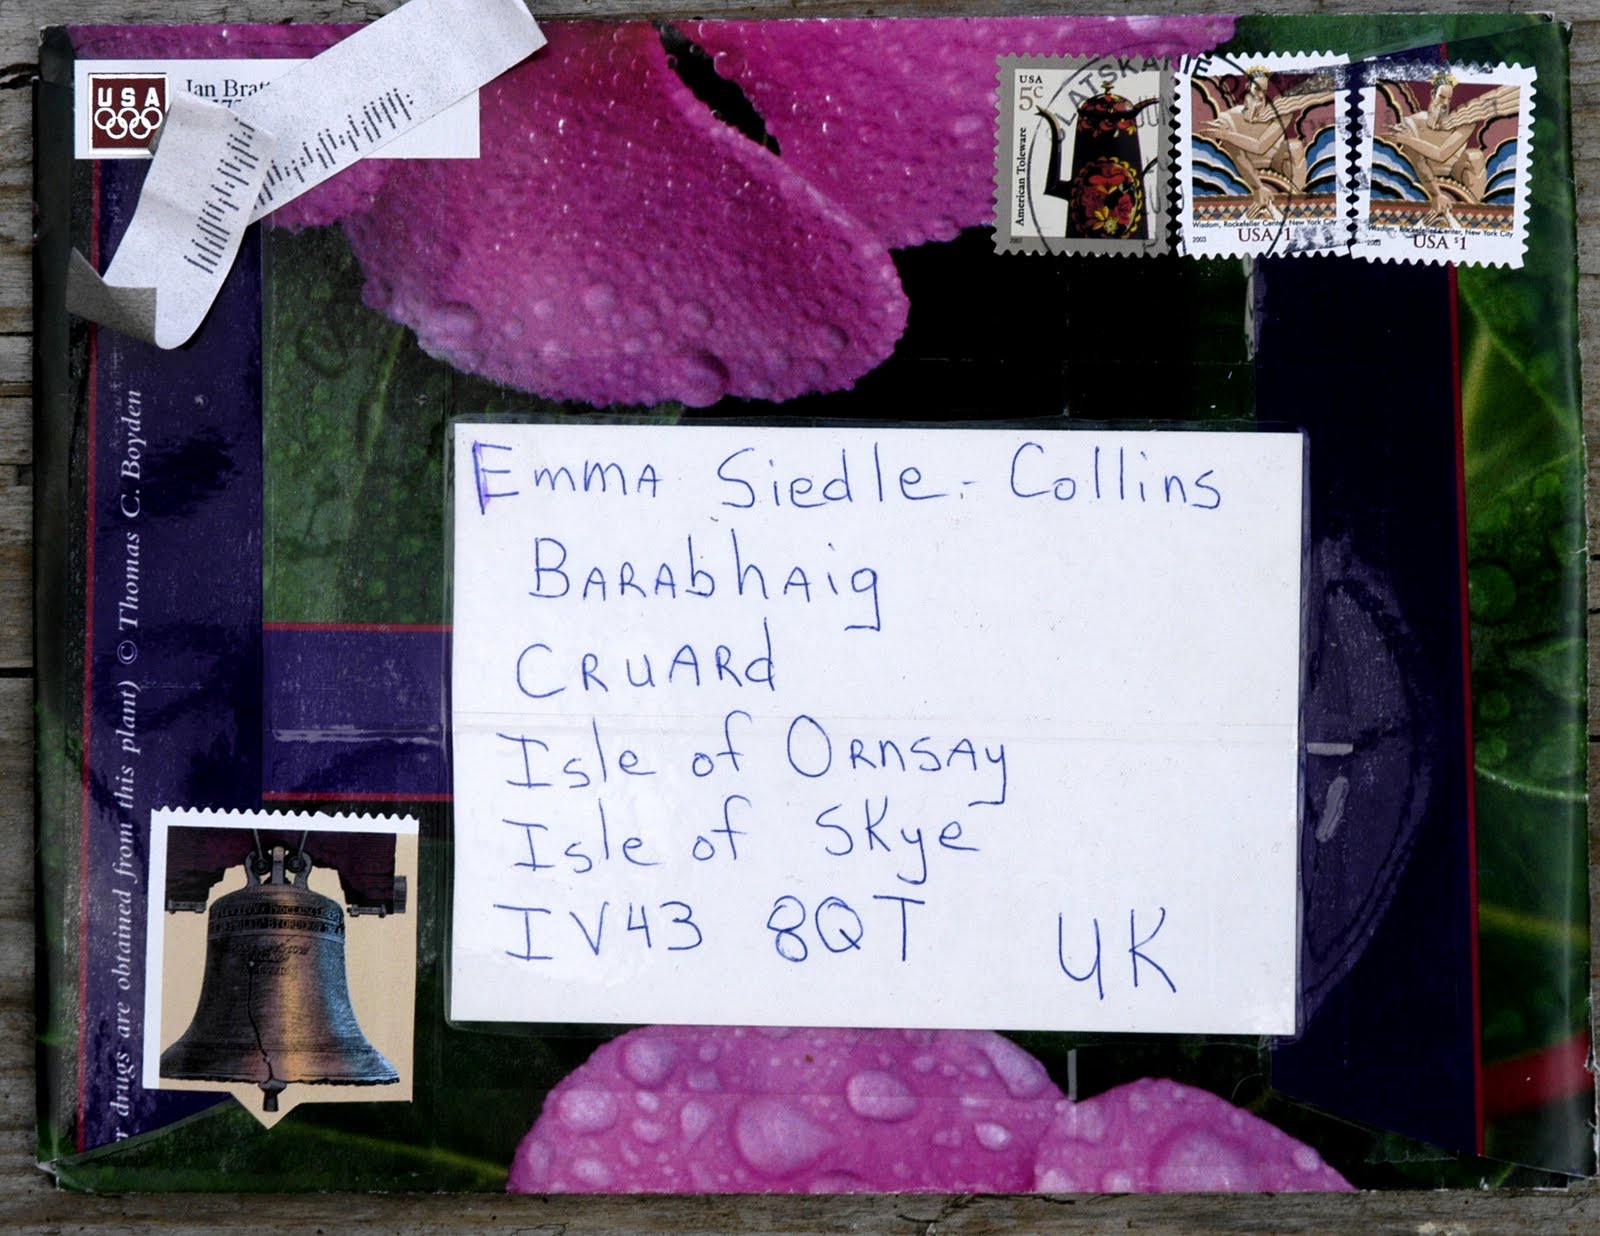 USA
Ian Bratt
USA
5c
American Toleware
2007
CLATSKANIE
Wisdom, Rockefeller Center, New York City
2003
USA $1
Wisdom, Rockefeller Center, New York City
2003
USA $1
Emma Siedle-Collins
Barabhaig
Cruard
Isle of Ornsay
Isle of Skye
IV43 8QT UK
r drugs are obtained from this plant) © Thomas C. Boyden